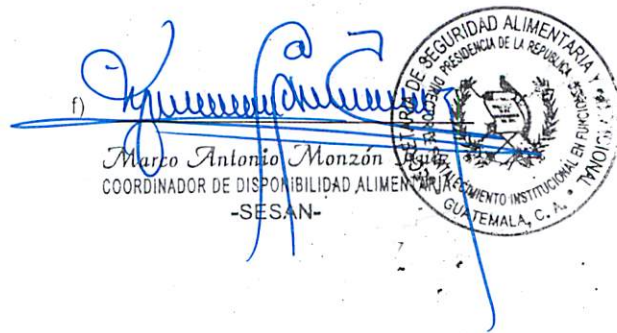 f)
Marco Antonio Monzón
COORDINADOR DE DISPONIBILIDAD ALIMENTARIA
-SESAN-
SECRETARÍA DE SEGURIDAD ALIMENTARIA Y
PRESIDENCIA DE LA REPUBLICA
INSTITUCIONAL EN FUNCION
GUATEMALA, C. A.